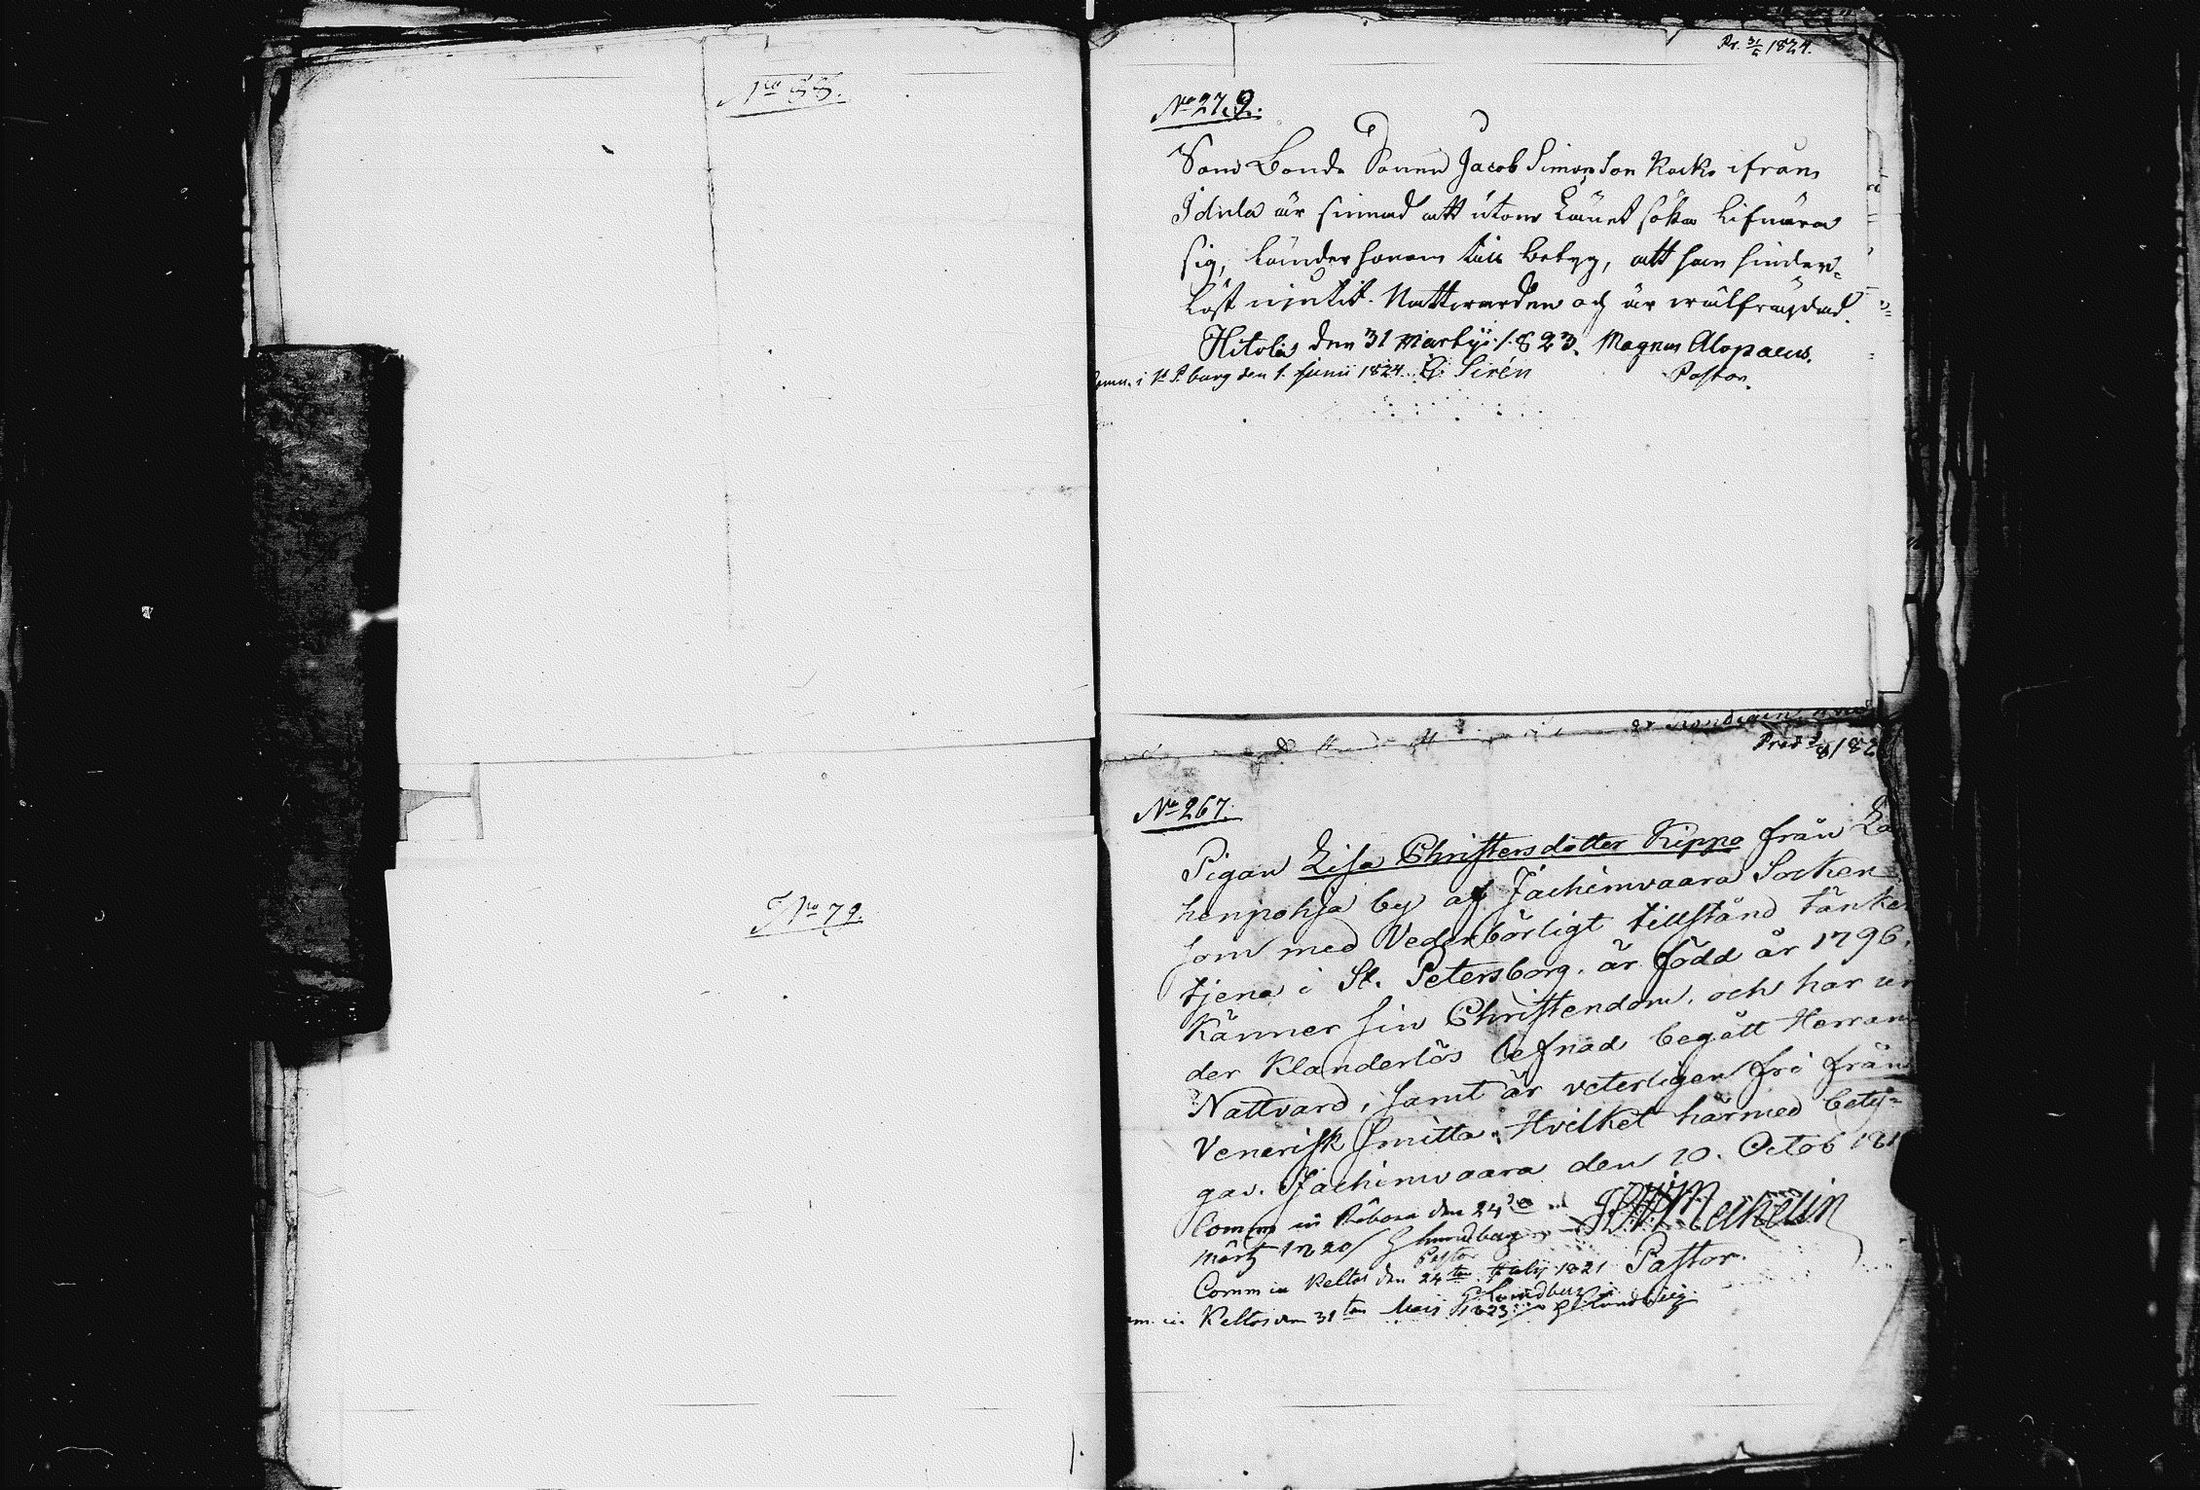 No 55.
No 79.
Pr. 31/5 1824.
No 279.
Som Bonde Sonen Jacob Simonsson Kocko ifrån
Idula är sinnad att utom Länet söka lifnära
sig, länder honom till betyg, att han hinder-
löst njutit Nattvarden och är wälfrägdad.
Hitola den 31 Martii 1823. Magnus Alopaeus.
Comm. i St P.burg den 1. Junii 1824. Sirén
Pastor.
No 267.
Pigan Lisa Christersdotter Kippo från La
henpohja by af Jachimvaara Socken
som med Vederbörligt tillstånd tänker
tjena i St. Petersborg, är född år 1796,
Känner sin Christendom, och har un
der Klanderlös lefnad begått Herrans
Nattvard, samt är veterligen fri från
Venerisk smitta. Hvilket härmed bety-
gas. Jachimvaara den 10. Octob 181
Comm in den 24
Märtz 1820 Pastor
Mechelin
Pastor.
Comm in Keltos den 24ten July 1821
Lundberg
m. in Keltos den 31ten Maii 1823